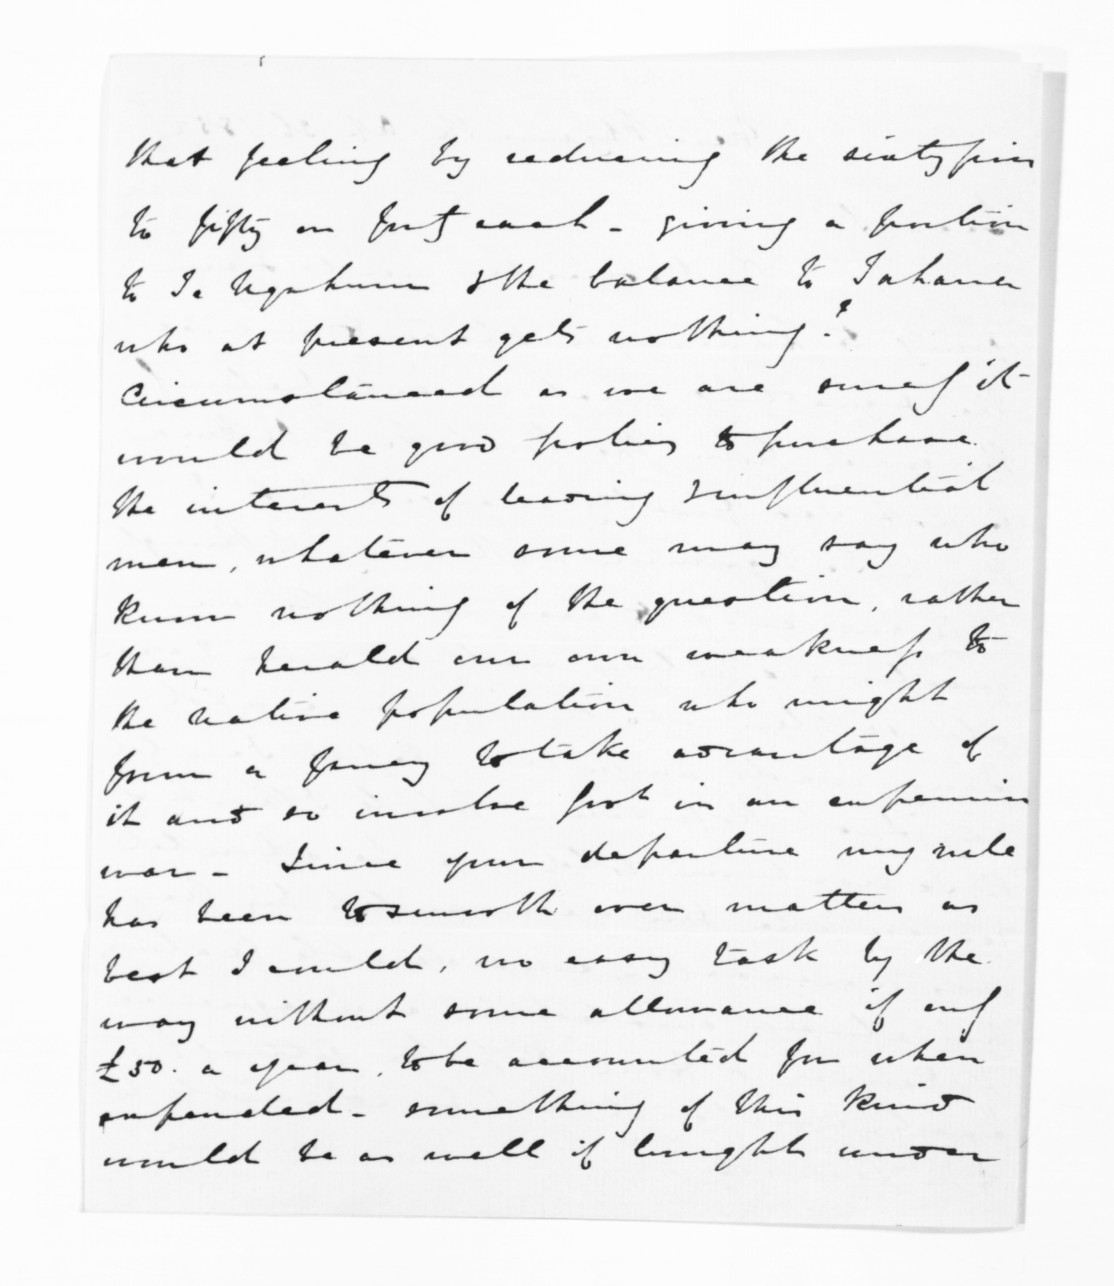 that feeling by reducing the sixty five
to fifty or forty each - giving a portion
to Te Ngahuru & the balance to Tahana
who at present gets nothing?
Circumstanced as we are surely it
would be good policy to purchase
the interests of leading & influential
men, whatever some may say who
know nothing of the question, rather
than herald our own weakness to
the native population who might
form a fancy to take advantage of
it and so involve Govt in an expensive
war - Since your departure my rule
has been to smooth over matters as
best I could, no easy task by the
way without some allowance if only
£50. a year, to be accounted for when
expended - something of this kind
would be as well if brought under